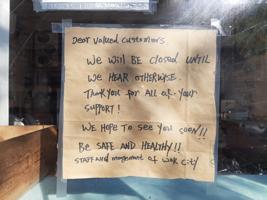 Dear valued customers.
We will BE closed UNTIL
We HEAR OTHERWISE.
Thank you for ALL of your
SUPPORT!
WE HOPE TO SEE YOU SOON!!
BE SAFE AND HEALTHY!!
STAFF and management of wok city